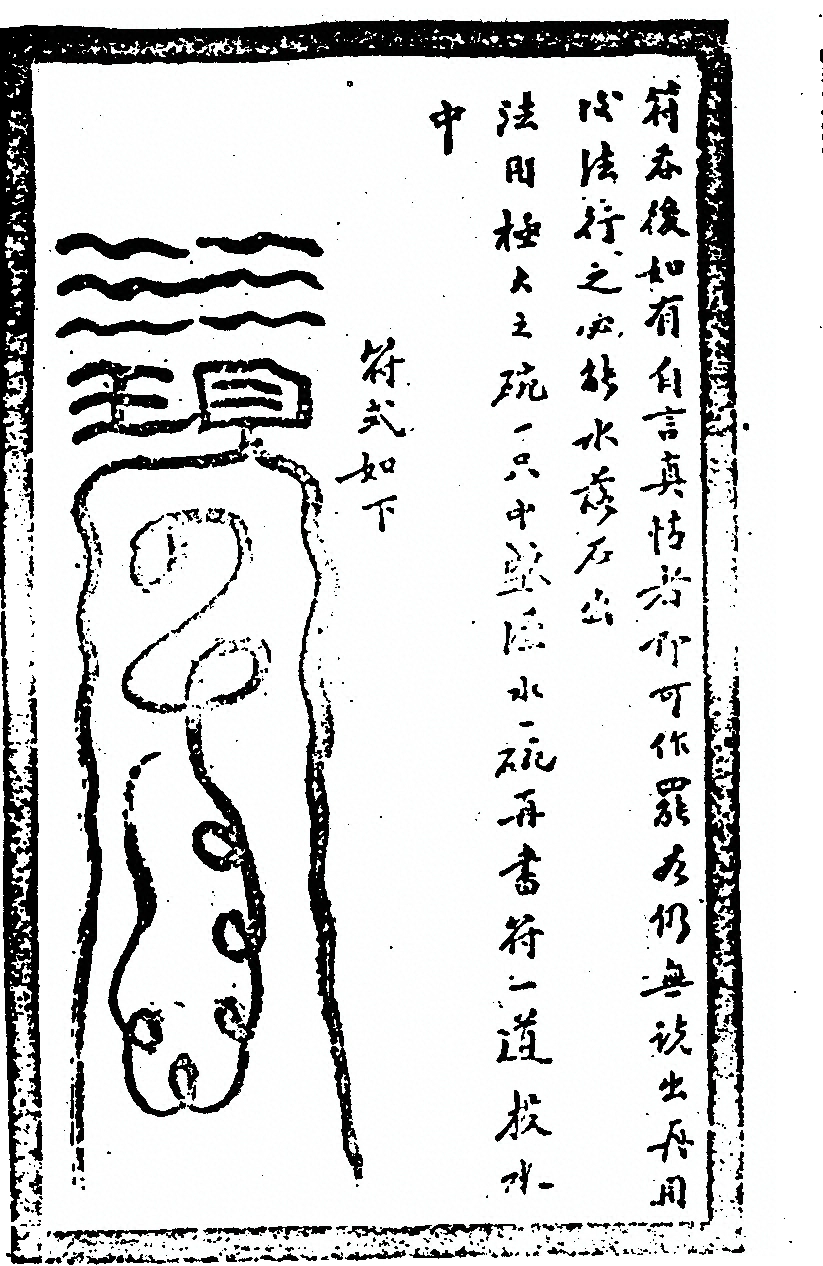 符吞後如有自言真情者即可作罷若仍無説出再用
此法行之必能水落石出
法用極大之碗一只中盛清水一碗再書符一道投水
中
符式如下